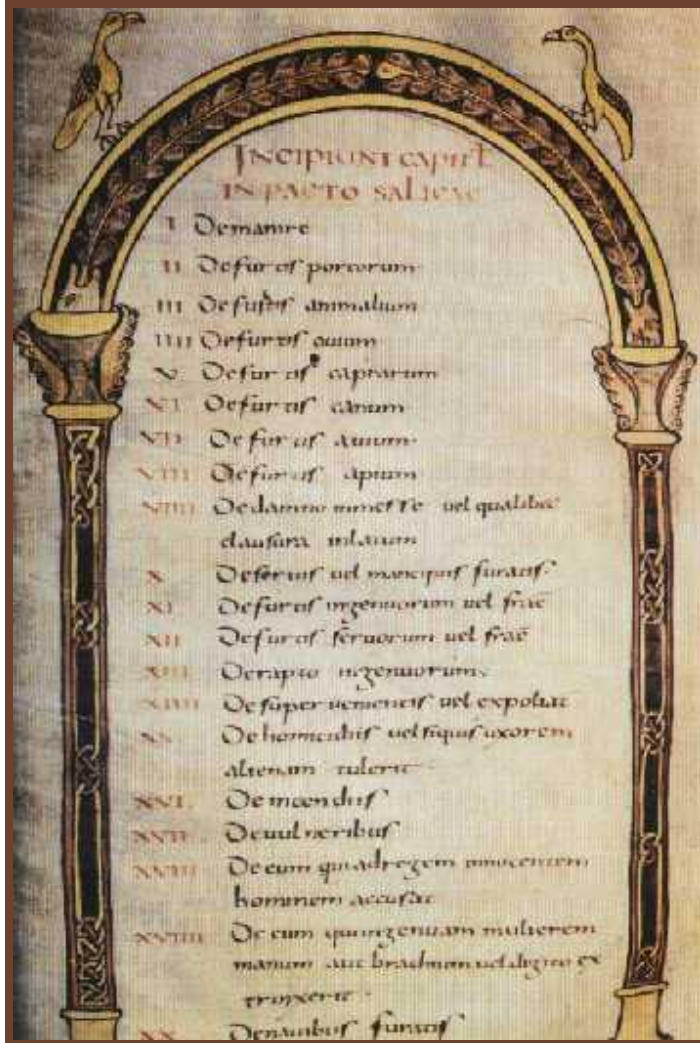 INCIPIUNT CAPITL
IN PACTO SALICAE
I Demanire
II Defurtis porcorum
III Defurtis animalium
IIII Defurtis ouium
V Defurtis caprarum
VI Defurtis canum
VII Defurtis auium
VIII Defurtis apium
VIIII Dedamno inmesse uel qualibet
clausura inlatum
X Deseruis uel mancipiis furatis
XI Defurtis ingenuorum uel frac
XII Defurtis seruorum uel frac
XIII Derapto ingenuorum
XIIII Desuper uenientis uel expoliat
XV Dehomicidiis uel siquis uxorem
alienam tulerit
XVI Deincendiis
XVII Deuulneribus
XVIII Deeum qui adregem innocentem
hominem accusat
XVIIII Deeum qui ingenuam mulierem
manum aut brachium uel digito ex
trinxerit
XX Denauibus furatis